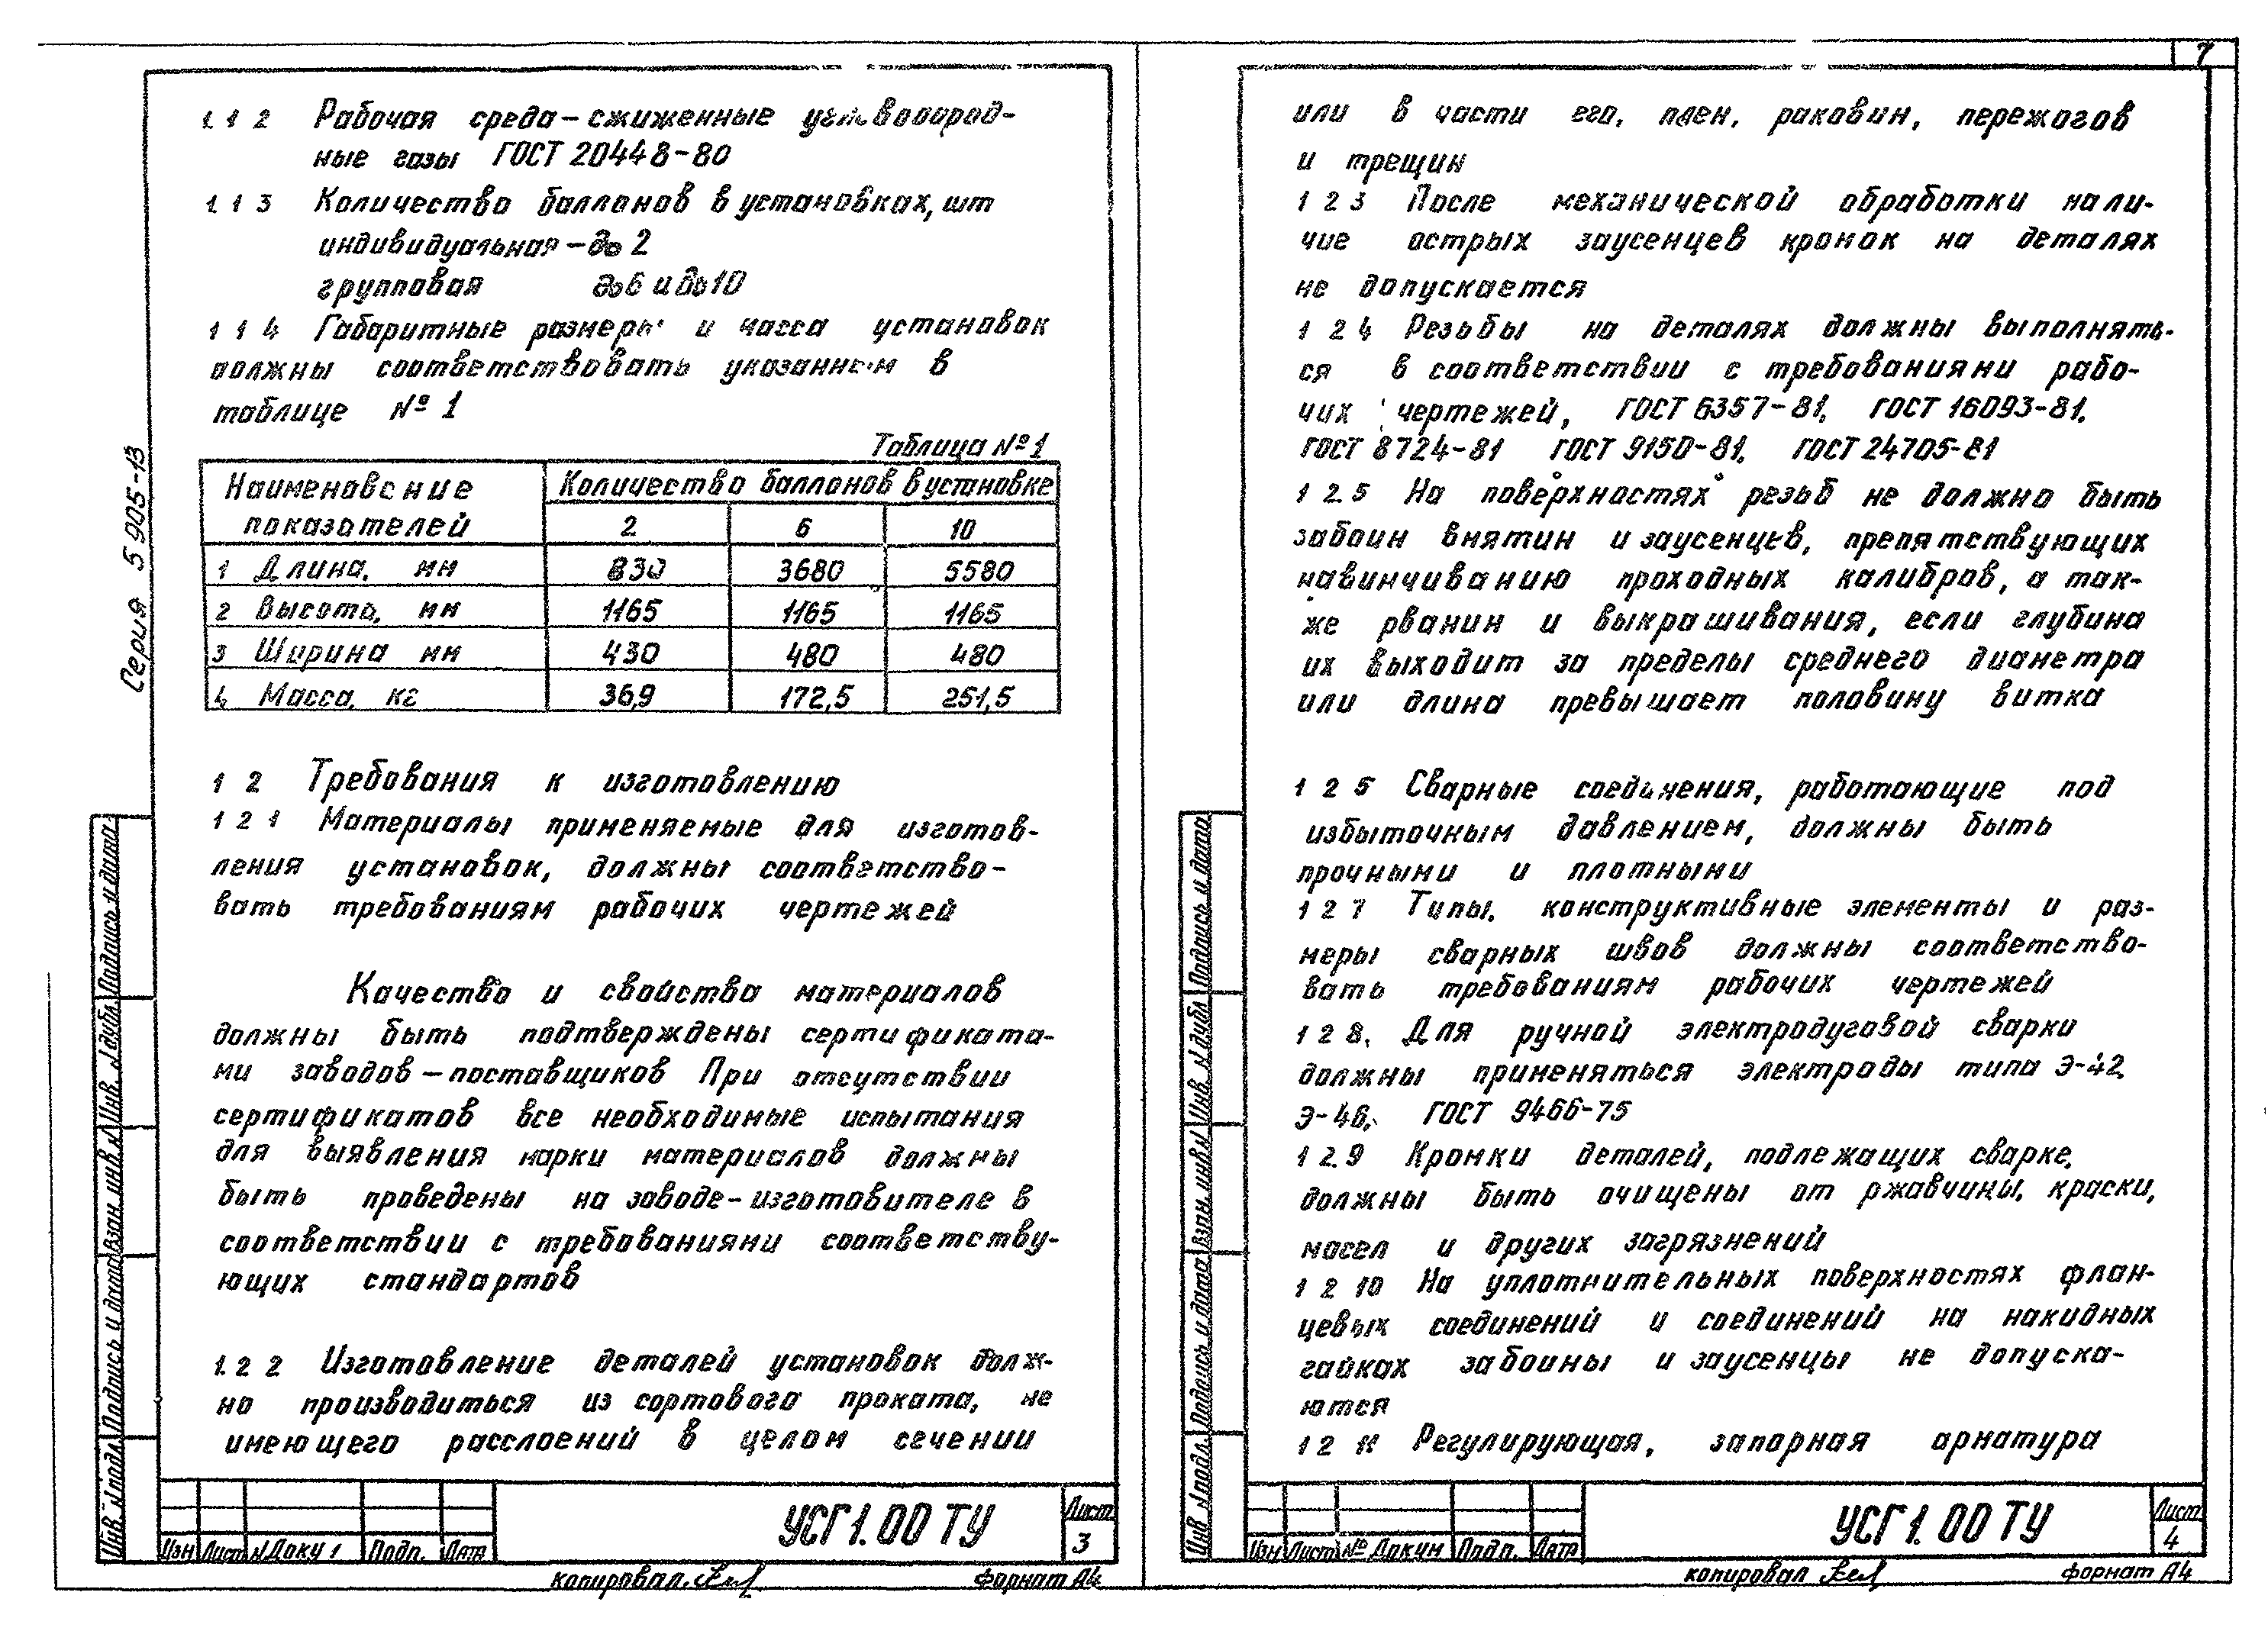 7
1.1 2 Рабочая среда – сжиженные углеводород-
ные газы ГОСТ 20448-80
1.1 3 Количество баллонов в установках, шт
индивидуальная – до 2
групповая до 6 и до 10
1 1 4 Габаритные размеры и масса установок
должны соответствовать указанным в
таблице № 1
Таблица № 1
Наименование показателей Количество баллонов в установке
2 6 10
1 Длина, мм 830 3680 5580
2 Высота, мм 1165 1165 1165
3 Ширина мм 430 480 480
4 Масса, кг 36,9 172,5 251,5
1 2 Требования к изготовлению
1 2 1 Материалы применяемые для изготов-
ления установок, должны соответство-
вать требованиям рабочих чертежей
Качество и свойства материалов
должны быть подтверждены сертификата-
ми заводов – поставщиков При отсутствии
сертификатов все необходимые испытания
для выявления марки материалов должны
быть проведены на заводе – изготовителе в
соответствии с требованиями соответству-
ющих стандартов
1.2 2 Изготовление деталей установок долж-
но производиться из сортового проката, не
имеющего расслоений в целом сечении
Серия 5 905-13
Подпись и дата
Инв. № дубл
Взам. инв. №
Подпись и дата
Инв. № подл.
Изм Лист № Докум Подп. Дата
УСГ 1. 00 ТУ
Лист
3
копировал
формат А4
или в части его, плен, раковин, пережогов
и трещин
1 2 3 После механической обработки нали-
чие острых заусенцев кромок на деталях
не допускается
1 2 4 Резьбы на деталях должны выполнять-
ся в соответствии с требованиями рабо-
чих чертежей, ГОСТ 6357-81, ГОСТ 16093-81,
ГОСТ 8724-81 ГОСТ 9150-81, ГОСТ 24705-81
1 2.5 На поверхностях резьб не должно быть
забоин вмятин и заусенцев, препятствующих
навинчиванию проходных калибров, а так-
же рванин и выкрашивания, если глубина
их выходит за пределы среднего диаметра
или длина превышает половину витка
1 2 5 Сварные соединения, работающие под
избыточным давлением, должны быть
прочными и плотными
1 2 7 Типы, конструктивные элементы и раз-
меры сварных швов должны соответство-
вать требованиям рабочих чертежей
1 2 8. Для ручной электродуговой сварки
должны применяться электроды типа Э-42,
Э-46, ГОСТ 9466-75
1 2.9 Кромки деталей, подлежащих сварке,
должны быть очищены от ржавчины, краски,
масел и других загрязнений
1 2 10 На уплотнительных поверхностях флан-
цевых соединений и соединений на накидных
гайках забоины и заусенцы не допуска-
ются
1 2 11 Регулирующая, запорная арматура
Подпись и дата
Инв. № дубл
Взам. инв. №
Подпись и дата
Инв. № подл.
Изм Лист № Докум Подп. Дата
УСГ 1. 00 ТУ
Лист
4
копировал
формат А4